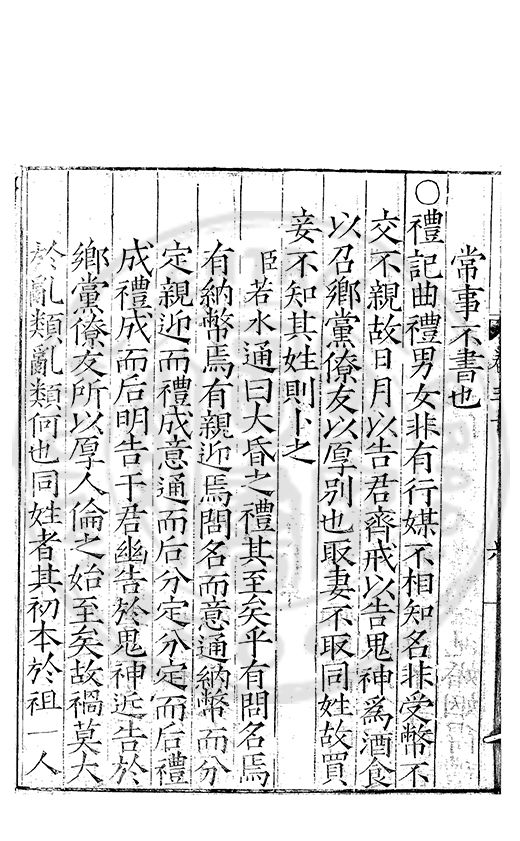 常事不書也
○禮記曲禮男女非有行媒不相知名非受幣不
交不親故日月以告君齊戒以告鬼神為酒食
以召鄉黨僚友以厚別也取妻不取同姓故買
妾不知其姓則卜之
臣若水通曰大昏之禮其至矣乎有問名焉
有納幣焉有親迎焉問名而意通納幣而分
定親迎而禮成意通而后分定分定而后禮
成禮成而后明告于君幽告於鬼神近告於
鄉黨僚友所以厚人倫之始至矣故禍莫大
於亂類亂類何也同姓者其初本於祖一人